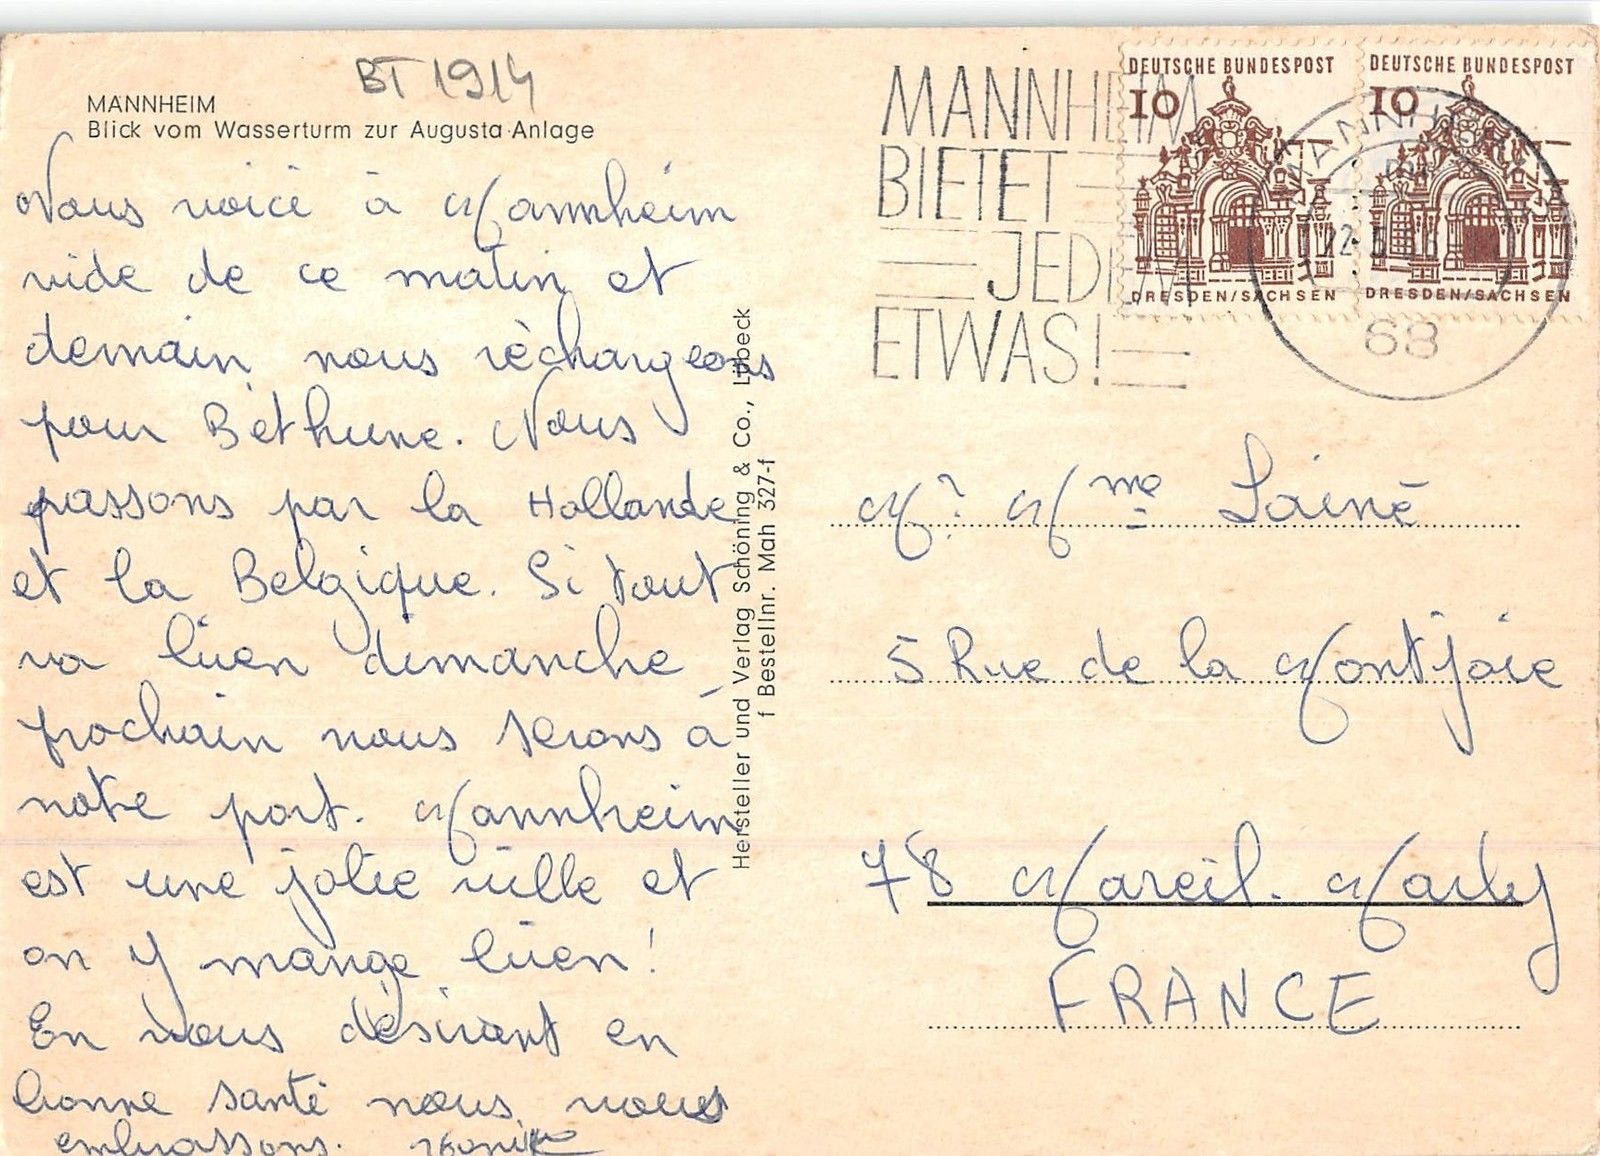 BT 1914
MANNHEIM
Blick vom Wasserturm zur Augusta-Anlage
Nous voici à Mannheim
vide de ce matin et
demain nous rechargeons
pour Béthune. Nous
passons par la Hollande
et la Belgique. Si tout
va bien dimanche
prochain nous serons à
notre port. Mannheim
est une jolie ville et
on y mange bien!
En vous désirant en
bonne santé nous vous
embrassons.
Hersteller und Verlag Schöning & Co., Lübeck
f Bestellnr. Mah 327-f
MANNHEIM
BIETET
JEDEM
ETWAS!
DEUTSCHE BUNDESPOST
10
DRESDEN/SACHSEN
DEUTSCHE BUNDESPOST
10
DRESDEN/SACHSEN
MANNHEIM
68
Mr Mme Lainé
5 Rue de la Montjoie
78 Mareil-Marly
FRANCE